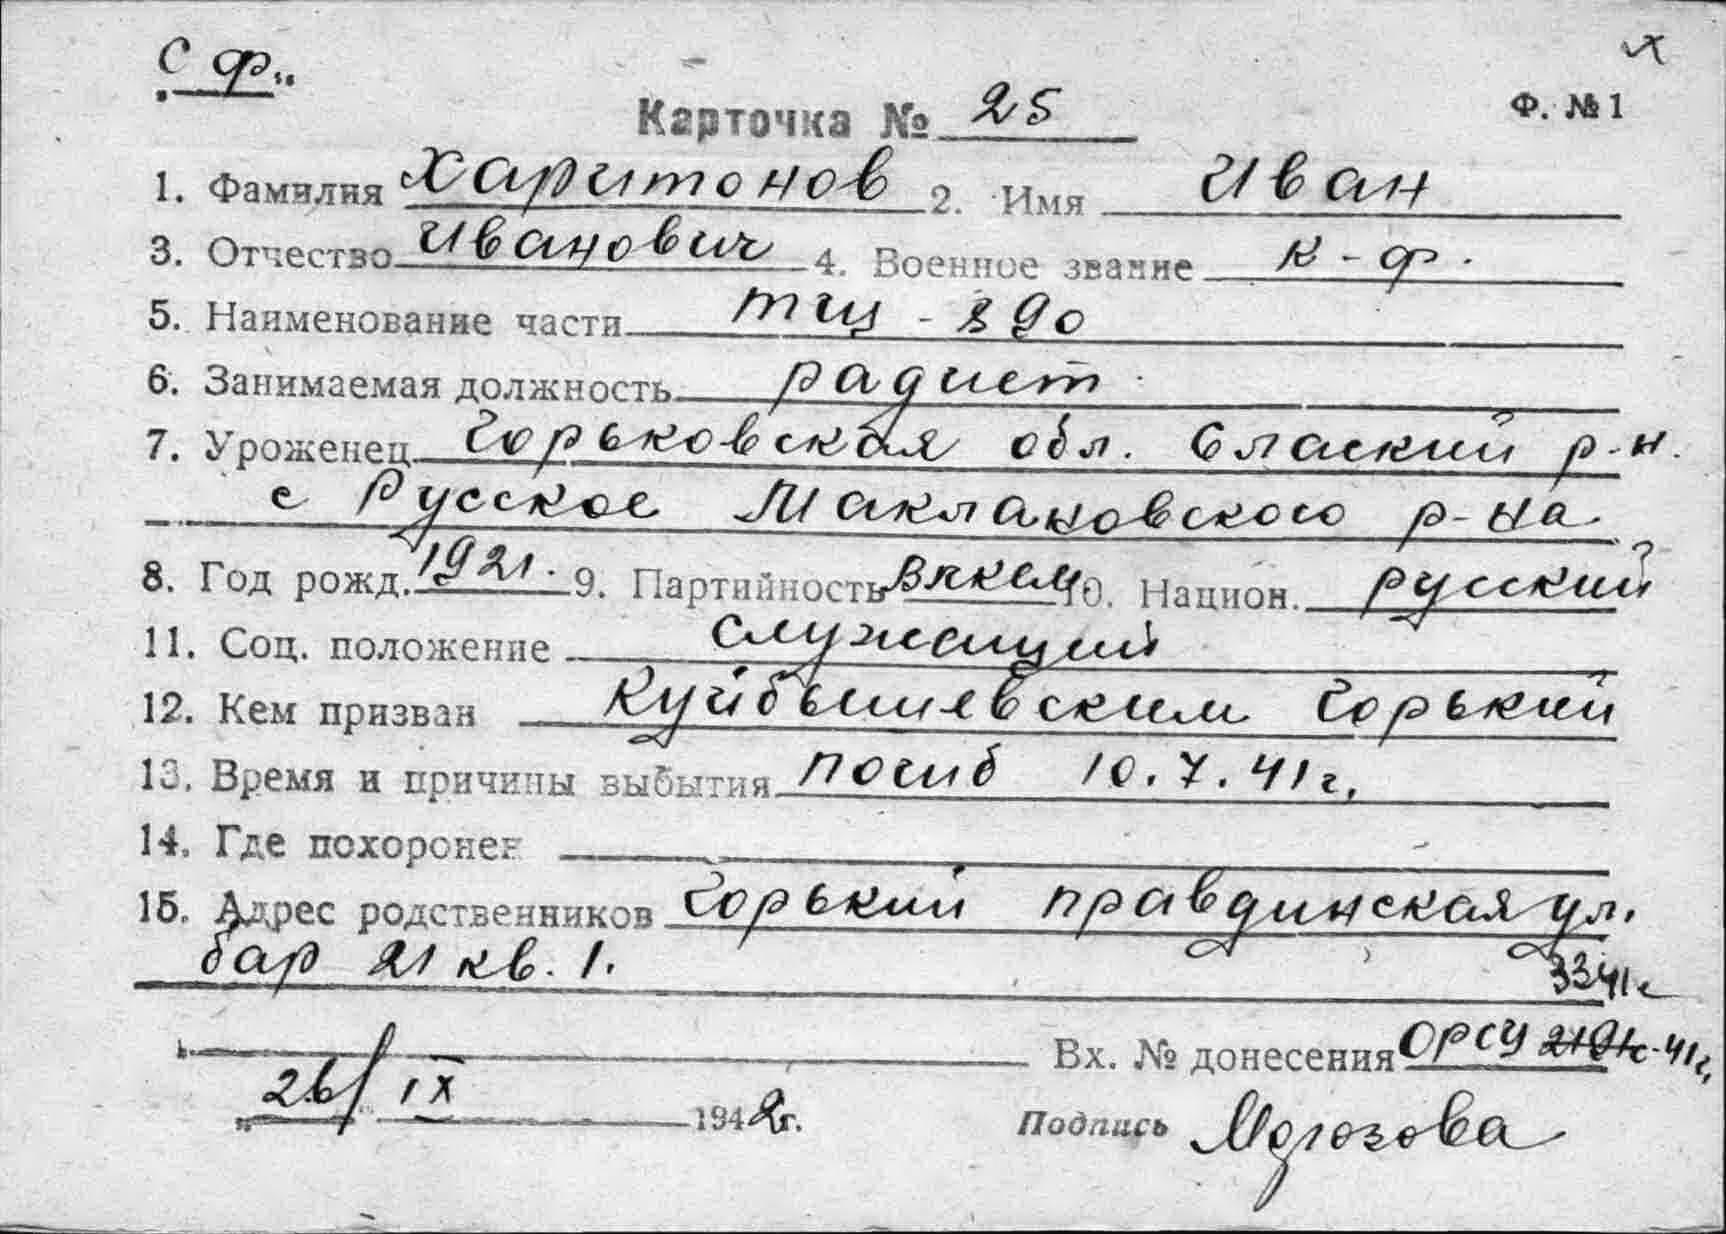 С Ф.
Ф. № 1
Карточка № 25
1. Фамилия Харитонов 2. Имя Иван
3. Отчество Иванович 4. Военное звание к-ф.
5. Наименование части тщ - 890
6. Занимаемая должность радист
7. Уроженец Горьковская обл. Спаский р-н.
с Русское Маклаковского р-на
8. Год рожд. 1921. 9. Партийность ВЛКСМ 10. Национ. русский
11. Соц. положение служащий
12. Кем призван Куйбышевским Горький
13. Время и причины выбытия погиб 10.7.41г.
14. Где похоронен
15. Адрес родственников Горький правдинская ул.
бар 21 кв. 1.
3341с
Вх. № донесения ОРСУ -41г.
„26/ IX 1942г.
Подпись Морозова